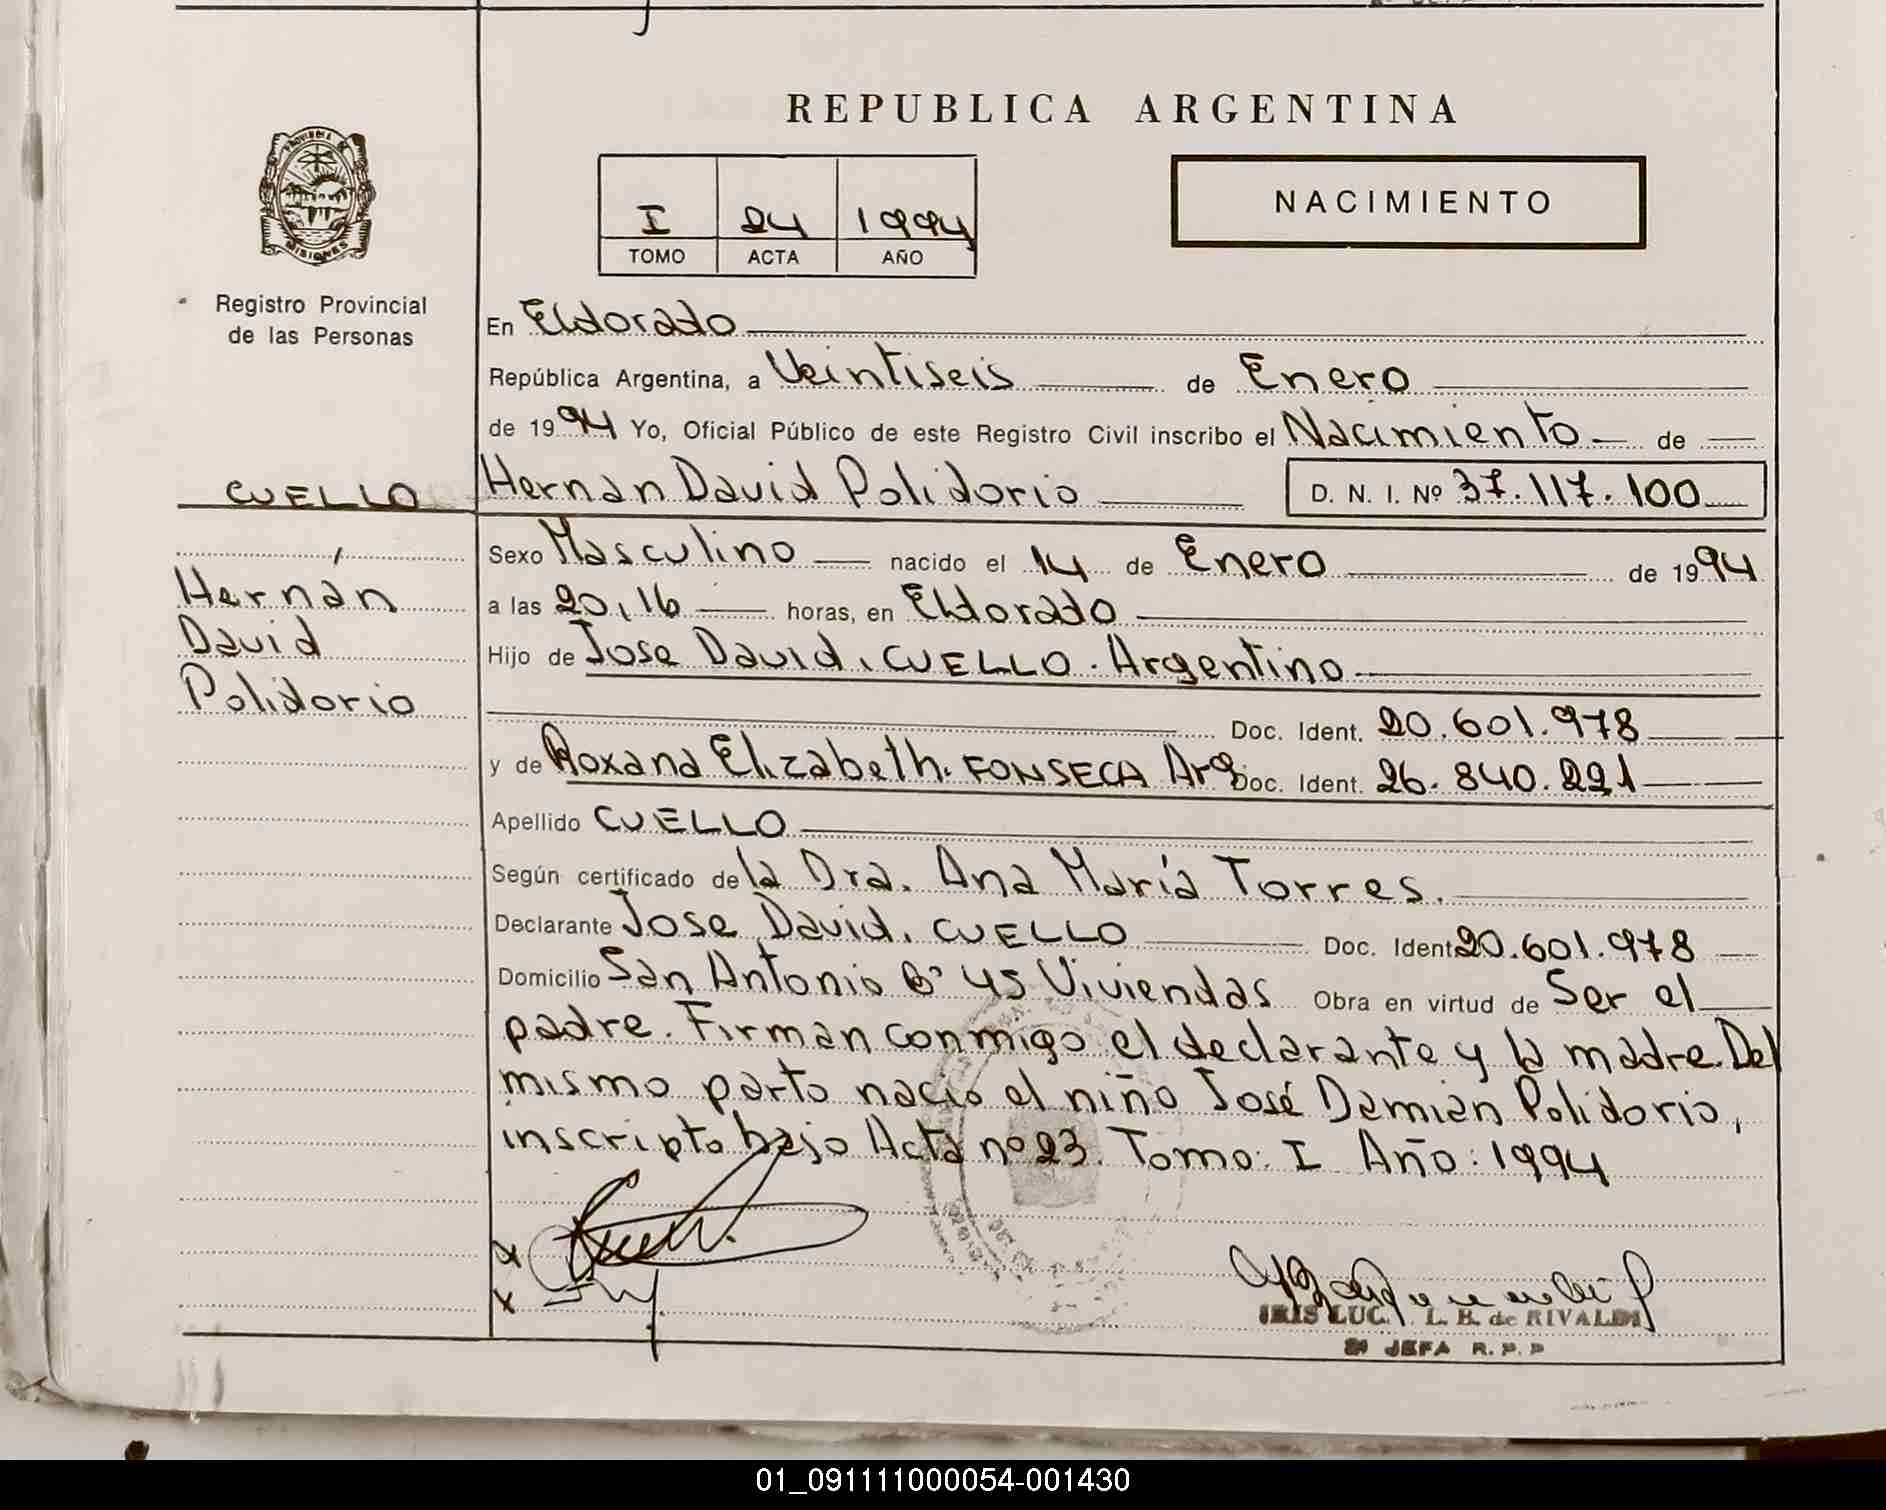 REPUBLICA ARGENTINA
PROVINCIA DE
MISIONES
Registro Provincial
de las Personas
I 24 1994
TOMO ACTA AÑO
NACIMIENTO
En Eldorado
República Argentina, a Veintiseis de Enero
de 1994 Yo, Oficial Público de este Registro Civil inscribo el Nacimiento de
CUELLO
Hernan David Polidorio D. N. I. Nº 37.117.100
Hernán
David
Polidorio
Sexo Masculino nacido el 14 de Enero de 1994
a las 20,16 horas, en Eldorado
Hijo de Jose David. CUELLO. Argentino
Doc. Ident. 20.601.978
y de Roxana Elizabeth. FONSECA Arg. Doc. Ident. 26.840.221
Apellido CUELLO
Según certificado de la Dra. Ana María Torres.
Declarante Jose David. CUELLO Doc. Ident 20.601.978
Domicilio San Antonio Bº 45 Viviendas Obra en virtud de Ser el
padre. Firman conmigo el declarante y la madre. Del
mismo parto nacio el niño José Damián Polidorio,
inscripto bajo Acta nº 23. Tomo: I Año: 1994
x
x
IRIS LUC. L. B. de RIVALDI
2ª JEFA R. P. P
01_091111000054-001430